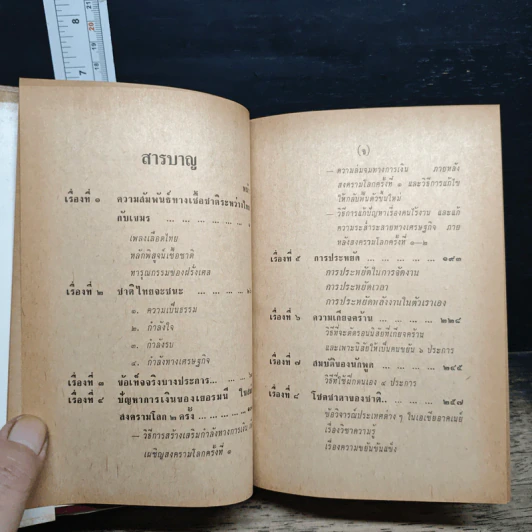 8
7
20
21
สารบาญ
เรื่องที่ ๑ ความสัมพันธ์ทางเชื้อชาติระหว่างไทย
กับเขมร ... ... ... ... ...
เพลงเลือดไทย
หลักพิสูจน์เชื้อชาติ
ทารุณกรรมของฝรั่งเศส
เรื่องที่ ๒ ชาติไทยจะชนะ ... ... ...
๑. ความเป็นธรรม
๒. กำลังใจ
๓. กำลังรบ
๔. กำลังทางเศรษฐกิจ
เรื่องที่ ๓ ข้อเท็จจริงบางประการ... ...
เรื่องที่ ๔ ปัญหาการเงินของเยอรมนี
สงครามโลก ๒ ครั้ง ... ... ...
— วิธีการสร้างเสริมกำลังทางการเงิน
เผชิญสงครามโลกครั้งที่ ๑
(ข)
— ความล่มจมทางการเงิน ภายหลัง
สงครามโลกครั้งที่ ๑ และวิธีการแก้ไข
ให้กลับคืนดีขึ้นใหม่
— วิธีการแก้ปัญหาเรื่องคนไร้งาน และแก้
ความระส่ำระสายทางเศรษฐกิจ ภาย
หลังสงครามโลกครั้งที่ ๑—๒
เรื่องที่ ๕ การประหยัด ... ... ... ... ๑๙๓
การประหยัดในการจัดงาน
การประหยัดเวลา
การประหยัดพลังงานในตัวเราเอง
เรื่องที่ ๖ ความเกียจคร้าน ... ... ... ๒๒๘
วิธีที่จะดัดรอนนิสัยที่เกียจคร้าน
และเพาะนิสัยให้เป็นคนขยัน ๖ ประการ
เรื่องที่ ๗ สมบัติของนักพูด ... ... ... ๒๔๕
วิธีที่ใช้ฝึกตนเอง ๔ ประการ
เรื่องที่ ๘ โชคชาตาของชาติ. ... ... ๒๕๗
ข้อวิจารณ์ประเทศต่าง ๆ ในเอเซียอาคเนย์
เรื่องวิชาความรู้
เรื่องความขยันขันแข็ง